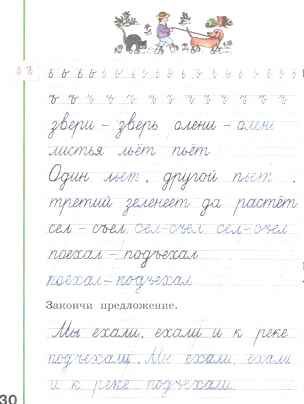 ъ ъ ъ ъ ъ ъ ъ ъ ъ ъ
звери – зверь олени – олень
листья льёт пьёт
Один льет, другой пьет,
третий зеленеет да растёт
сел – съел сел-съел сел-съел
поехал – подъехал
поехал – подъехал
Закончи предложение.
Мы ехали, ехали и к реке
подъехали. Мы ехали, ехали
и к реке подъехали
30